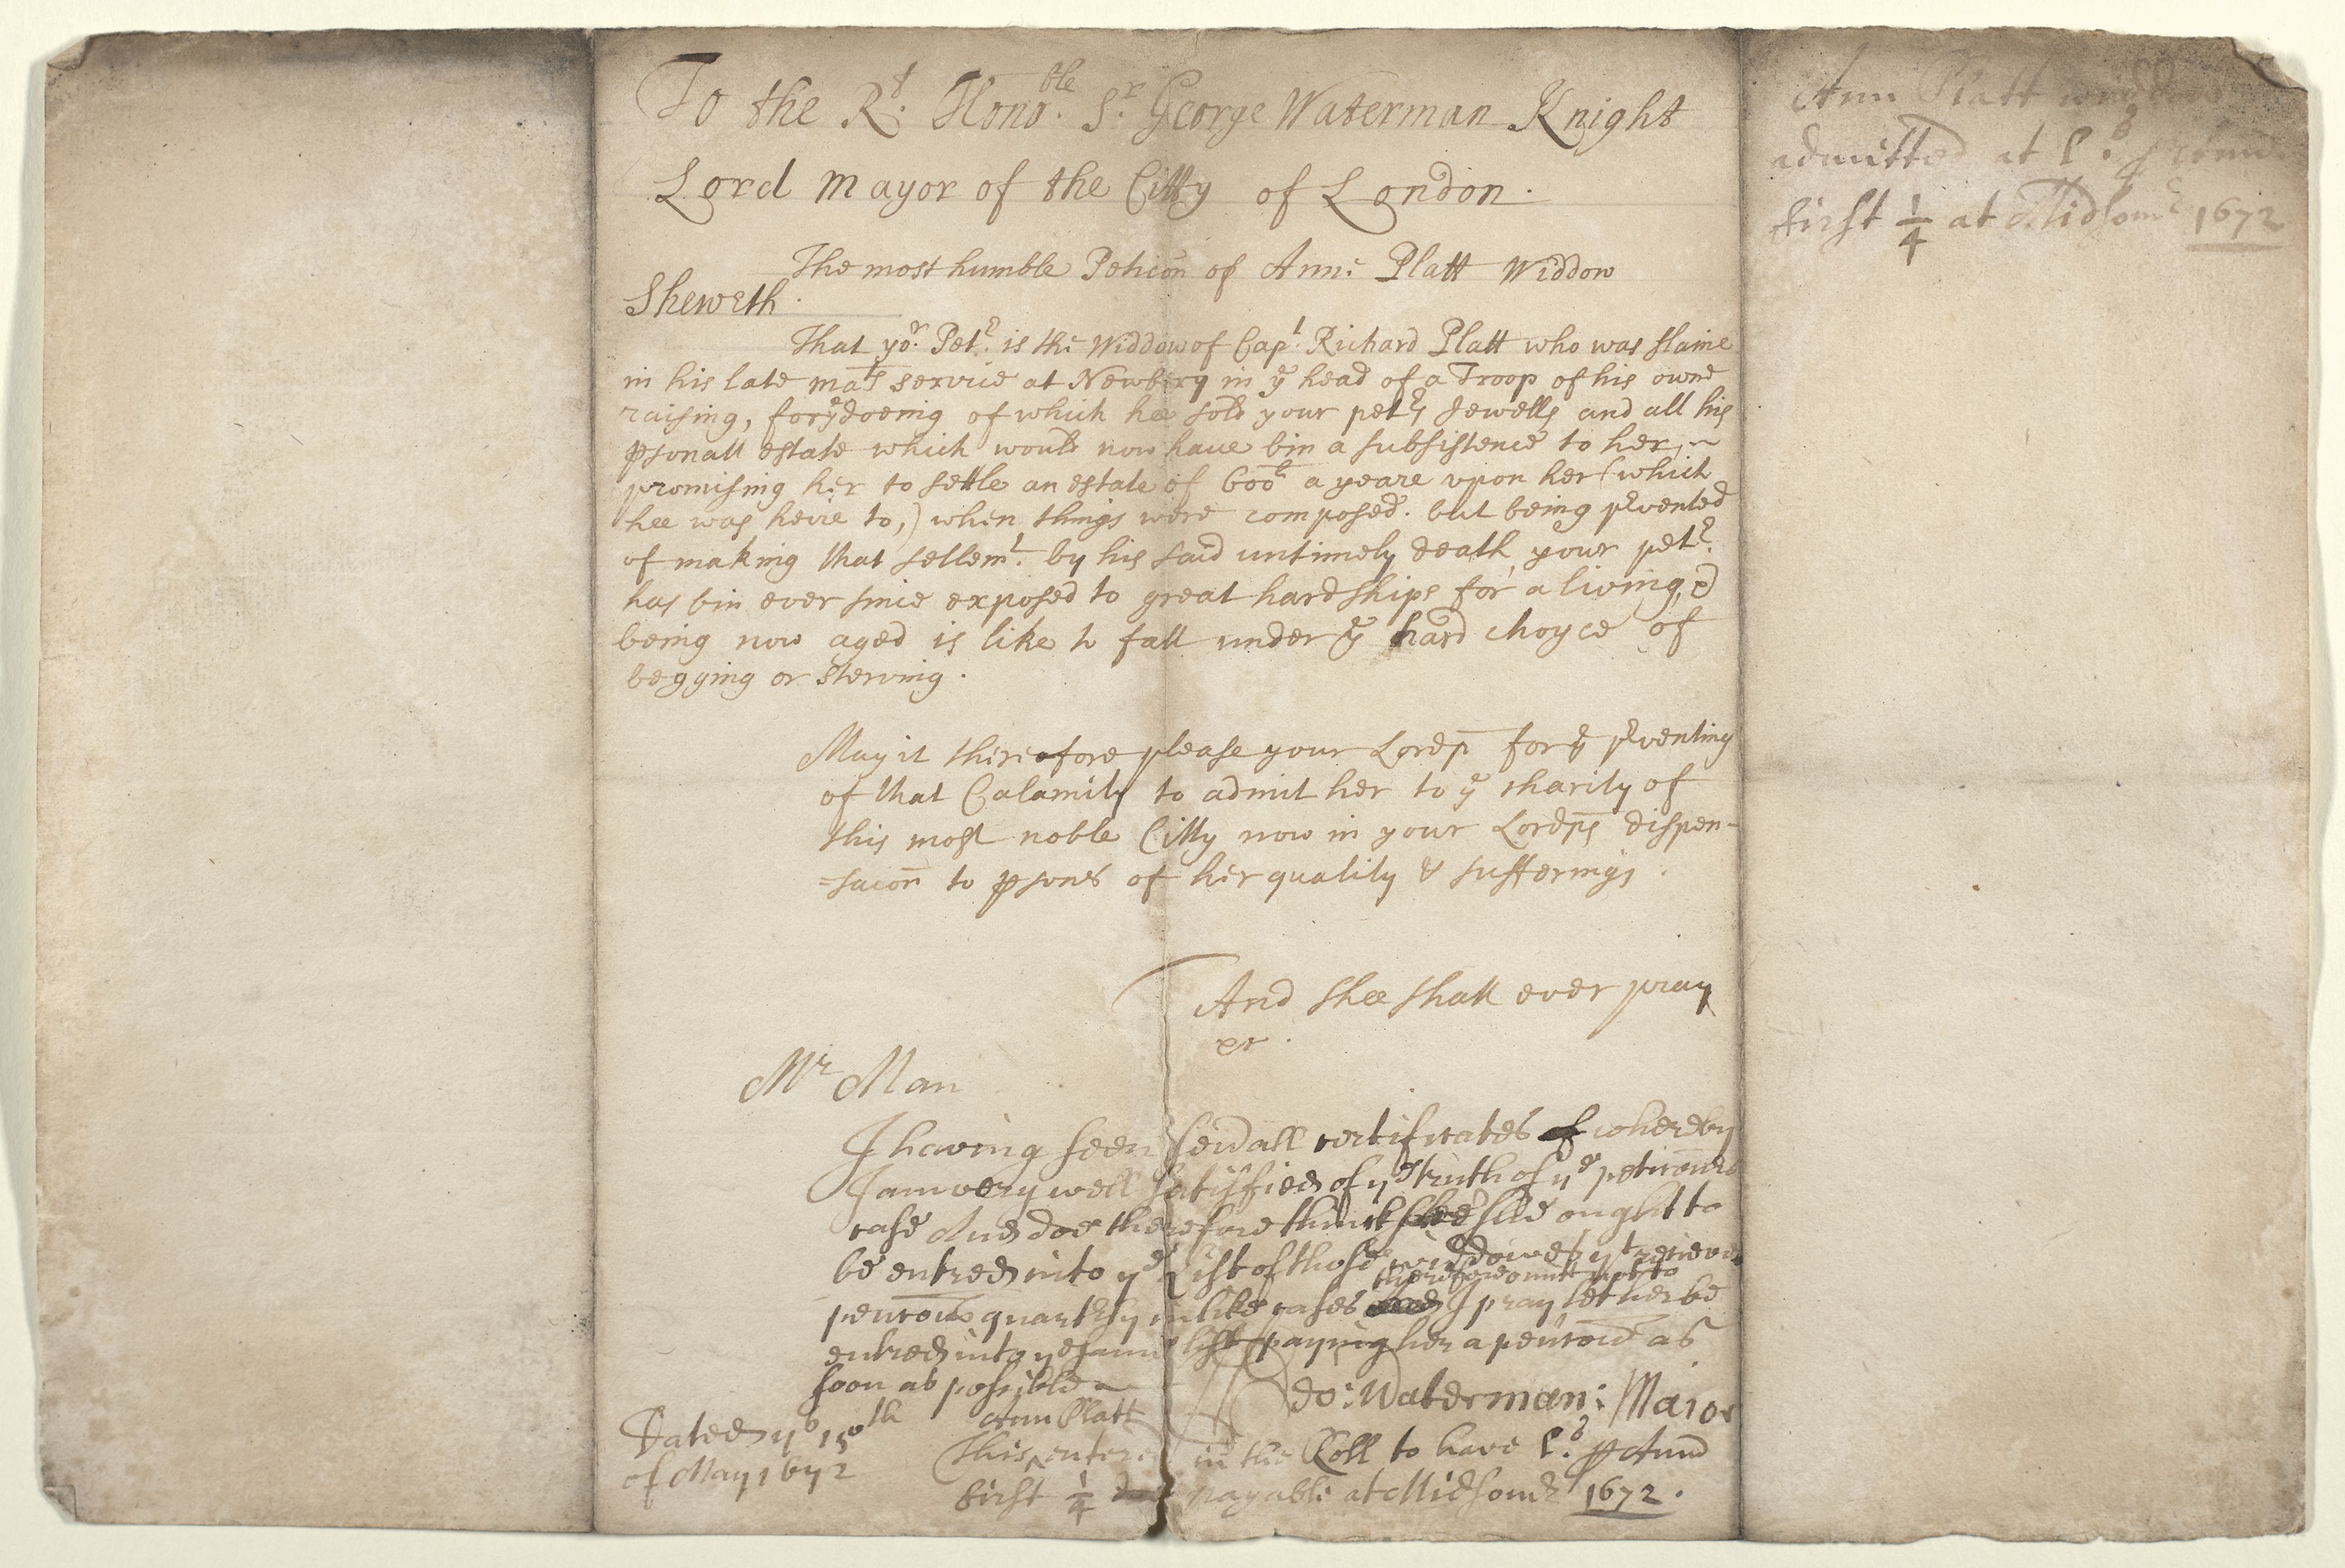 To the Rt. Honoble. Sr. George Waterman Knight
Lord mayor of the Citty of London.
The most humble Peticon of Anne Platt Widdow
Sheweth.
That yor. Petr. is the Widdow of Capt. Richard Platt who was slaine
in his late mats service at Newbery in ye head of a Troop of his owne
raising, for ye doeing of which hee sold your petrs Jewells and all his
psonall estate which would now have bin a subsistence to her,
promising her to settle an estate of 600l a yeare vpon her (which
hee was heire to,) when things were composed. but being pvented
of making that settlemt. by his said untimely death, your petr.
has bin ever since exposed to great hardships for a living, &
being now aged is like to fall under ye hard choyce of
begging or sterving.
May it therefore please your Lordp for ye pventing
of that Calamity to admit her to ye charity of
this most noble Citty now in your Lordps dispen-
=sacon to psons of her quality & sufferings.
And shee shall ever pray
&c.
Mr Man
I having seen sevrall certificates whereby
I am very well satisfied of ye truth of ye peticonrs
case And doe therefore think shee ought to
be entred into ye List of those widdowes yt receive
therefore omitt not to
pencons quarterly in like cases I pray let her be
entred into ye same list paying her a pencone as
soon as possible
Geo: Waterman: Maior
Dated ye 15th
of May 1672
Ann Platt
This entered in the Roll to have l. 8 p Annu
first 1/4 payable at Midsomr 1672.
Ann Platt widdow
admitted at l. 8 p Annu
first 1/4 at Midsomr 1672